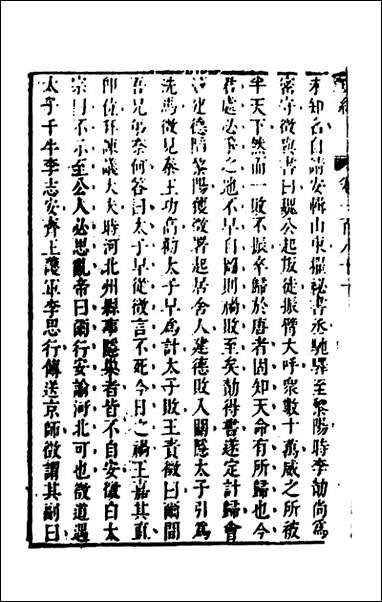 未知名自請安輯山東擢祕書丞馳驛至黎陽時李勣尚為
密守徵與書曰魏公起叛徒振臂大呼衆數十萬威之所被
半天下然而一敗不振卒歸於唐者固知天命有所歸也今
君處必爭之地不早自圖則禍敗至矣勣得書遂定計歸會
建德陷黎陽獲徵署起居舍人建德敗入關隱太子引為
洗馬徵見秦王功高勸太子早為計太子敗王責徵曰爾間
吾兄弟奈何答曰太子早從徵言不死今日之禍王嘉其直
即位拜諫議大夫時河北州縣事隱巢者皆不自安徵白太
宗曰不示至公人必思亂帝曰爾行安諭河北可也徵道遇
太子千牛李志安齊王護軍李思行傳送京師徵謂其副曰